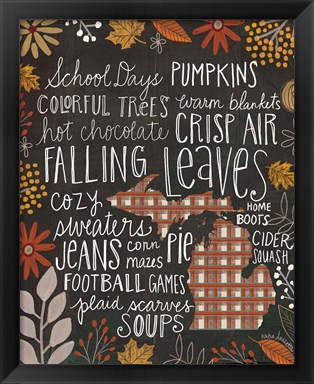 School Days PUMPKINS
COLORFUL TREES warm blankets
hot chocolate CRISP AIR
FALLING Leaves
cozy HOME
sweaters BOOTS
JEANS corn mazes PIE CIDER
SQUASH
FOOTBALL GAMES
plaid scarves
SOUPS